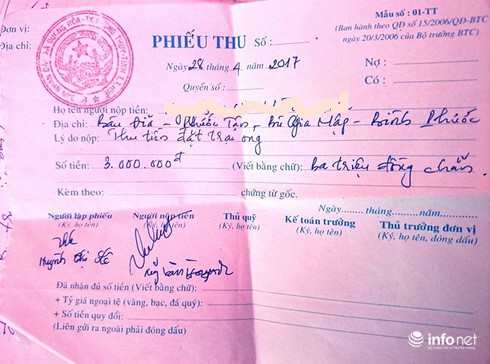 Đơn vị:
Địa chỉ:
Mẫu số : 01-TT
(Ban hành theo QĐ số 15/2006/QĐ-BTC
ngày 20/3/2006 của Bộ trưởng BTC)
PHIẾU THU Số :
Ngày 28 tháng 4 năm 2017
Quyển số :
Nợ :
Có :
Họ tên người nộp tiền:
Địa chỉ: Phước Tân, Bù Gia Mập - Bình Phước
Lý do nộp: Thu tiền đặt trại ong
Số tiền: 3.000.000đ (Viết bằng chữ): ba triệu đồng chẵn
Kèm theo: chứng từ gốc.
Ngày......tháng......năm......
Người lập phiếu
(Ký, họ tên)
Người nộp tiền
(Ký, họ tên)
Thủ quỹ
(Ký, họ tên)
Kế toán trưởng
(Ký, họ tên)
Thủ trưởng đơn vị
(Ký, họ tên, đóng dấu)
Huỳnh Thị
Đã nhận đủ số tiền (Viết bằng chữ):
+ Tỷ giá ngoại tệ (vàng, bạc, đá quý):
+ Số tiền quy đổi:
(Liên gửi ra ngoài phải đóng dấu)
infonet